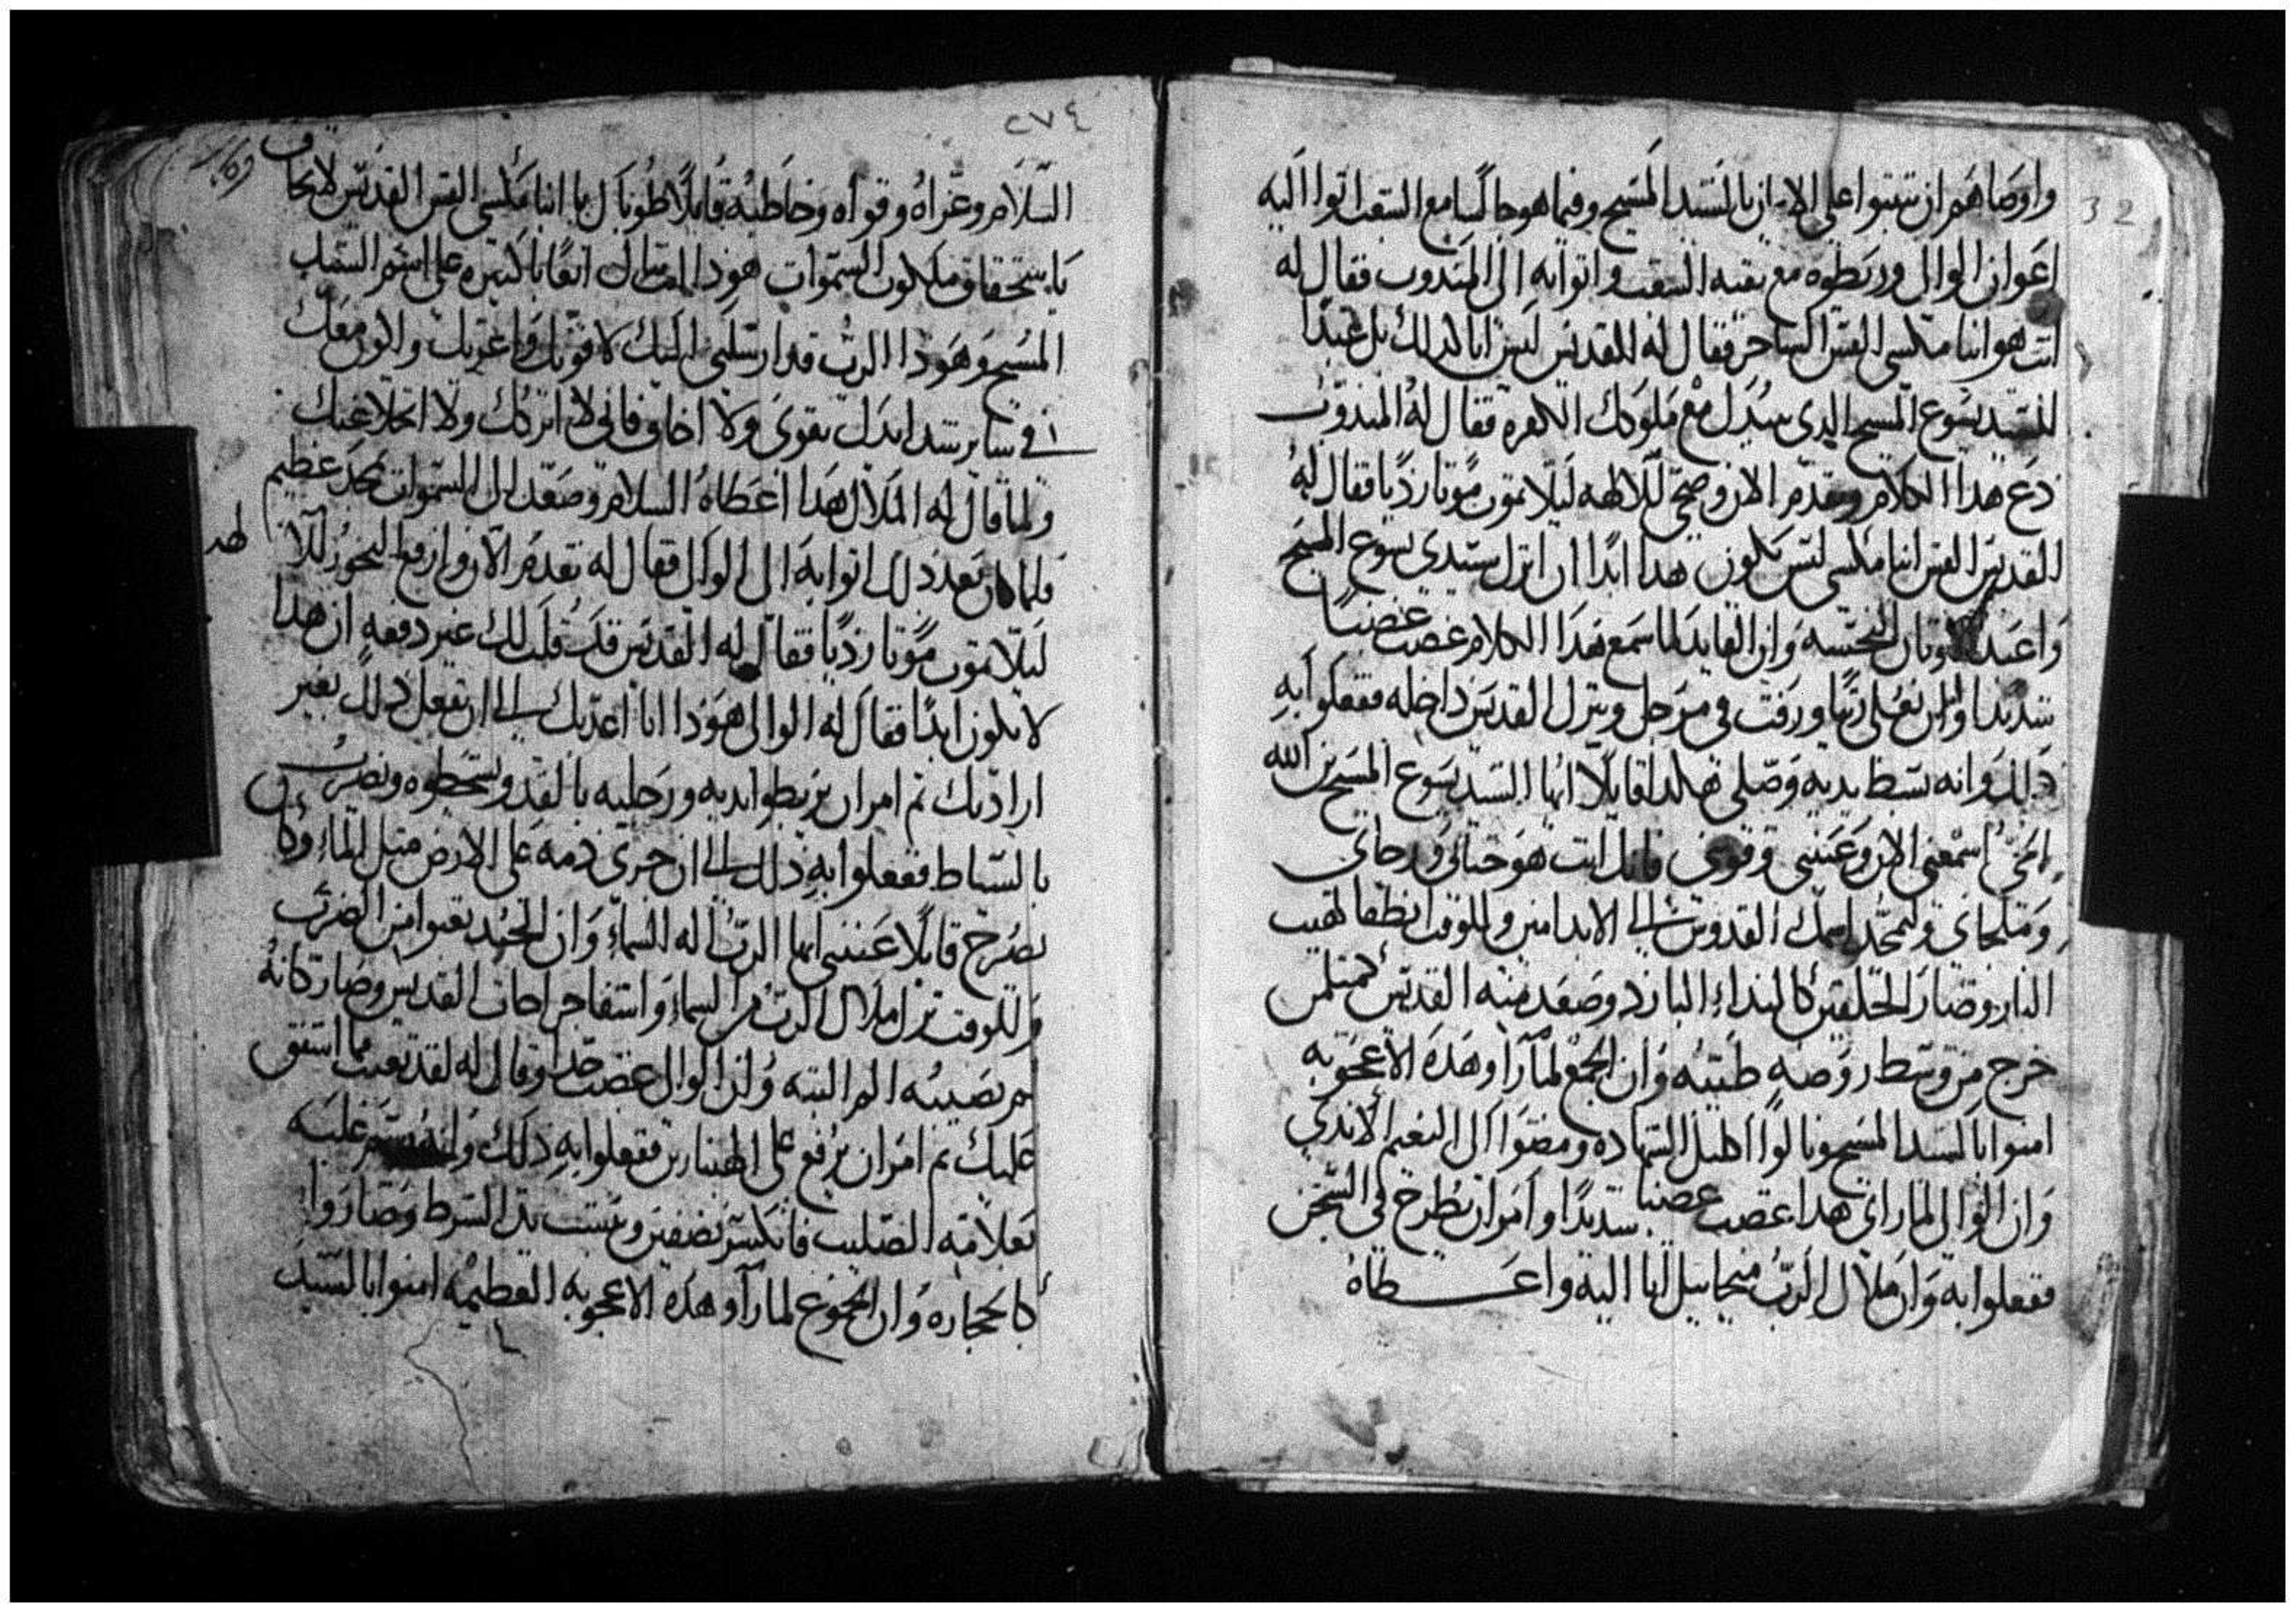 واوصاهم ان يتبتوا على الامانه بالسيد المسيح وفيما هو جالسا مع الشعب اتوا اليه
اعوان الوالى وربطوه مع بقيه الشعب واتوا به الى المندوب فقال له
انت هو ابنا مكسى القس الساحر فقال له القديس ليس انا كذلك بل عبدا
للسيد يسوع المسيح الدى سيدل مع ملوكك الكفره فقال له المندوب
دع هدا الكلام وتقدم الان وضحى للالهه ليلا تموت موتا رديا فقال له
القديس القس ابنا مكسى ليس يكون هدا ابدا ان اترك سيدى يسوع المسيح
واعبد الاوتان النجسه وان القايد لما سمع هدا الكلام غضب غضبا
شديدا وامر ان يغلى زيتا وزفت فى مرجل وينزل القديس داخله ففعلوا به
دلك وانه بسط يديه وصلى هكدا قايلا ايها السيد يسوع المسيح بن الله
الحى اسمعنى الان وعيننى وقونى فانك انت هو حياتى ورجاى
وملجاى وليمجد اسمك القدوس الى الابد امين وللوقت انطفا لهيب
النار وصار الخلقين كالنداء البارد وصعد منه القديس كمتل من
خرج من وسط روضه طيبه وان الجمع لما راوا هده الاعجوبه
امنوا بالسيد المسيح ونالوا اكليل الشهاده ومضوا الى النعيم الابدى
وان الوالى لما راى هدا غضب غضبا شديدا وامر ان يطرح فى السجن
ففعلوا به وان ملاك الرب ميخاييل اتا اليه واعطاه
32
٢٧٤
السلام وعزاه وقواه وخاطبه قايلا طوباك يا ابنا مكسى القس القديس لانك
باستحقاق ملكوت السموات هودا قبلت اتعابا كتيره على اسم السيد
المسيح وهودا الرب قد ارسلنى اليك لاقويك واعزيك والون معك
فى ساير شدايدك تقوى ولا تخاف فانى لا اتركك ولا اتخلا عنك
ولما قال له الملاك هدا اعطاه السلام وصعد الى السموات بمجد عظيم
فلما كان بعد دلك اتوا به الى الوالى فقال له تقدم الان وارفع البخور للالهه
ليلا تموت موتا رديا فقال له القديس قد قلت لك غير دفعه ان هدا
لا يكون ابدا فقال له الوالى هودا انا اعدبك الى ان تفعل دلك بغير
ارادتك تم امر ان يربطوا يديه ورجليه بالقد ويسحطوه ويضرب
بالسياط ففعلوا به دلك الى ان جرى دمه على الارض متل الماء وكان
يصرخ قايلا عيننى ايها الرب اله السماء وان الجند تعبوا من الضرب
وللوقت نزل ملاك الرب من السماء واشفا جراحات القديس وصار كانه
لم يصيبه الم البته وان الوالى غضب جدا وقال له لقد تعبت مما اشفق
عليك تم امر ان يرفع على الهنبازين ففعلوا به دلك وانه رشم عليه
بعلامه الصليب فانكسر نصفين ويبست يد الشرط وصاروا
كالحجاره وان الجموع لما راوا هده الاعجوبه العظيمه امنوا بالسيد